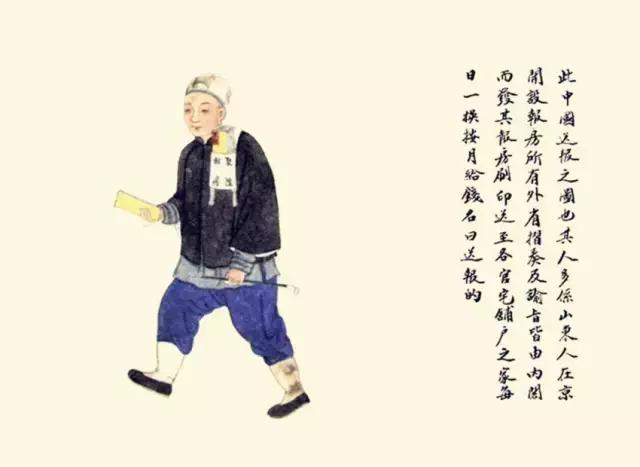 此中國送报之圖也其人多係山東人在京
開設報房所有外省摺奏及諭旨皆由内閣
而發其報房刷印送至各官宅舖戶之家每
日一換按月給錢名曰送報的
報房